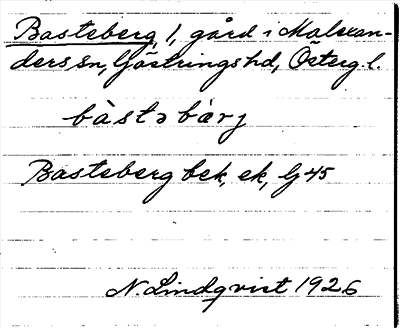 Basteberg, 1, gård i Malexan-
ders sn, Göstrings hd, Österg. l.
bàstəbärj
Basteberg bek, ek, G 45
N. Lindqvist 1926